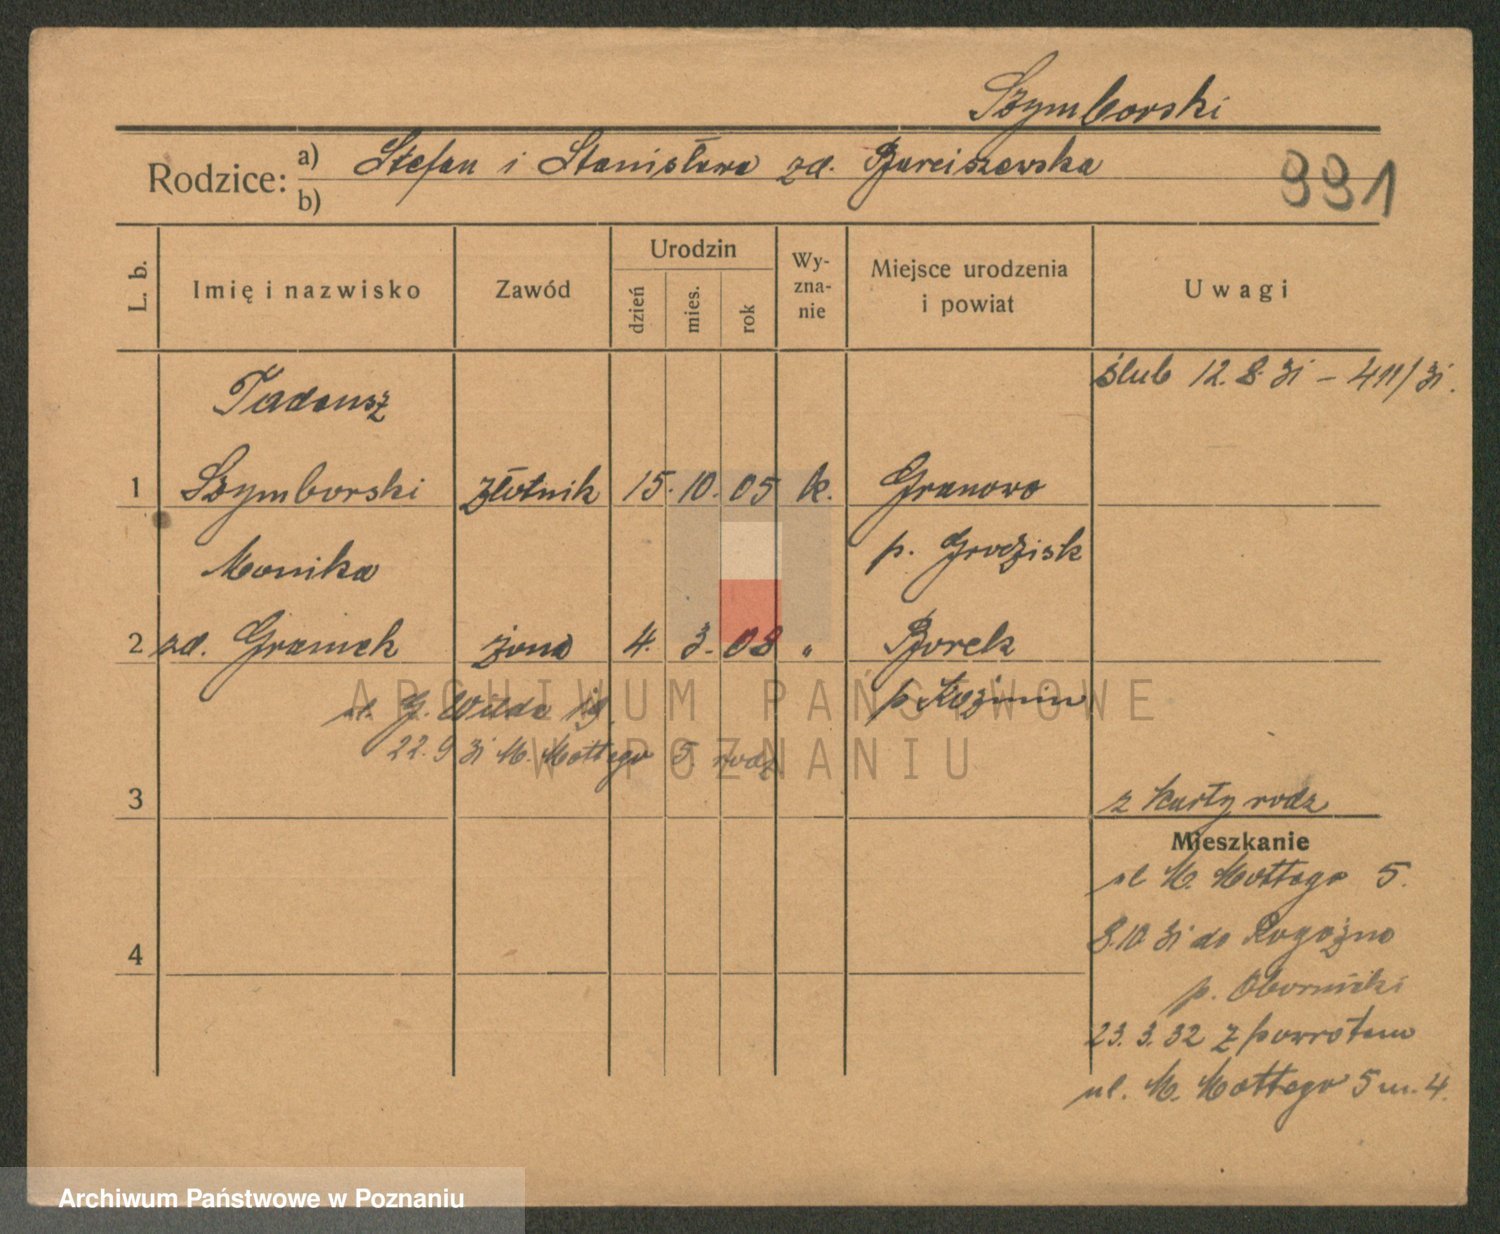 Szymborski
Rodzice: a) Stefan i Stanisława zd. Bareiszewska
b)
991
L. b.
Imię i nazwisko
Zawód
Urodzin
dzień
mies.
rok
Wy-
zna-
nie
Miejsce urodzenia
i powiat
Uwagi
ślub 12.8.31 – 411/31.
Tadeusz
1 Szymborski złotnik 15. 10. 05 k. Granowo
Monika p. Grodzisk
2 zd. Graniek żona 4. 3. 08 " Borek
p. Koźmin
ul. G. Wilda 19.
22.9 31 M. Mottego 5 rodz
3
z karty rodz
Mieszkanie
ul M. Mottego 5.
8.10 31 do Rogoźno
4
p. Oborniki
23.3.32 z powrotem
ul. M. Mottego 5 m. 4.
ARCHIWUM PAŃSTWOWE
W POZNANIU
Archiwum Państwowe w Poznaniu